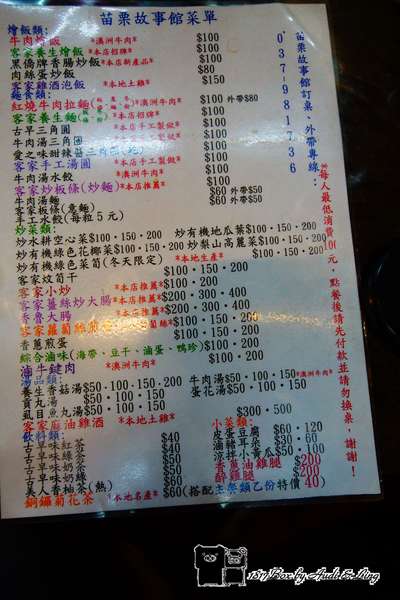 苗栗故事館菜單
燴飯類:
牛肉燴飯 *澳洲牛肉* $100
客家養生燴飯 *本店招牌* $100
黑橋牌香腸炒飯 *本店新產品* $100
肉絲蛋炒飯 $80
客家雞酒泡飯 *本地土雞* $150
麵食類:
紅燒牛肉拉麵 *澳洲牛肉* $100 外帶$80
客家養生麵 *本店招牌* $100
古早三角圓 *本店手工製做* $100
牛肉湯三角圓 $100
愛之味甜辣醬三角圓 $100
客家手工湯圓 *本店手工製做* $100
牛肉湯水餃 *澳洲牛肉* $100
客家炒板條(炒麵) *本店推薦* $100
牛肉湯麵 $60 外帶$50
客家板條 $60 外帶$50
手工水餃(每粒5元)
炒菜類:
炒水耕空心菜$100·150·200 炒有機地瓜葉$100·150·200
炒有機綠色花椰菜$100·150·200 炒梨山高麗菜$100·150·200
炒有機綠色菜筍(冬天限定) *本地生產* $100·150·200
客家炆筍干 $100·150·200
客家小炒 *本店推薦* $100·150·200
客家薑絲炒大腸 *本店推薦* $200·300·400
香滷大腸 *本店推薦* $200·300·400
客家蘿蔔絲煎蛋 $100·150·200
香蔥煎蛋 $100·150·200
綜合滷味(海帶、豆干、滷蛋、鴨珍) $100·200
滷牛腱肉 *澳洲牛肉* $100·200
湯品類:
養生香菇湯$50·100·150·200 牛肉湯$50·100·150·200 *澳洲牛肉*
貢丸湯$50·100·150·200 蛋花湯$50·100·150·200
虱目魚丸湯$50·100·150·200
客家麻油雞酒 *本地土雞* $300·500
飲料類:
古早味紅茶 $40
古早味奶茶 $50
古早味綠茶 $40
古早味奶綠 $50
美人香柚茶(熱) $60
銅鑼菊花茶 *本地名產* $60(搭配主菜類乙份特價40)
小菜類:
皮蛋豆腐 $60·120
滷豬耳朵 $30·60
涼拌小黃瓜$50·100
香蔥油雞腿 $200
醉雞腿 $200
苗栗故事館訂桌、外帶專線: